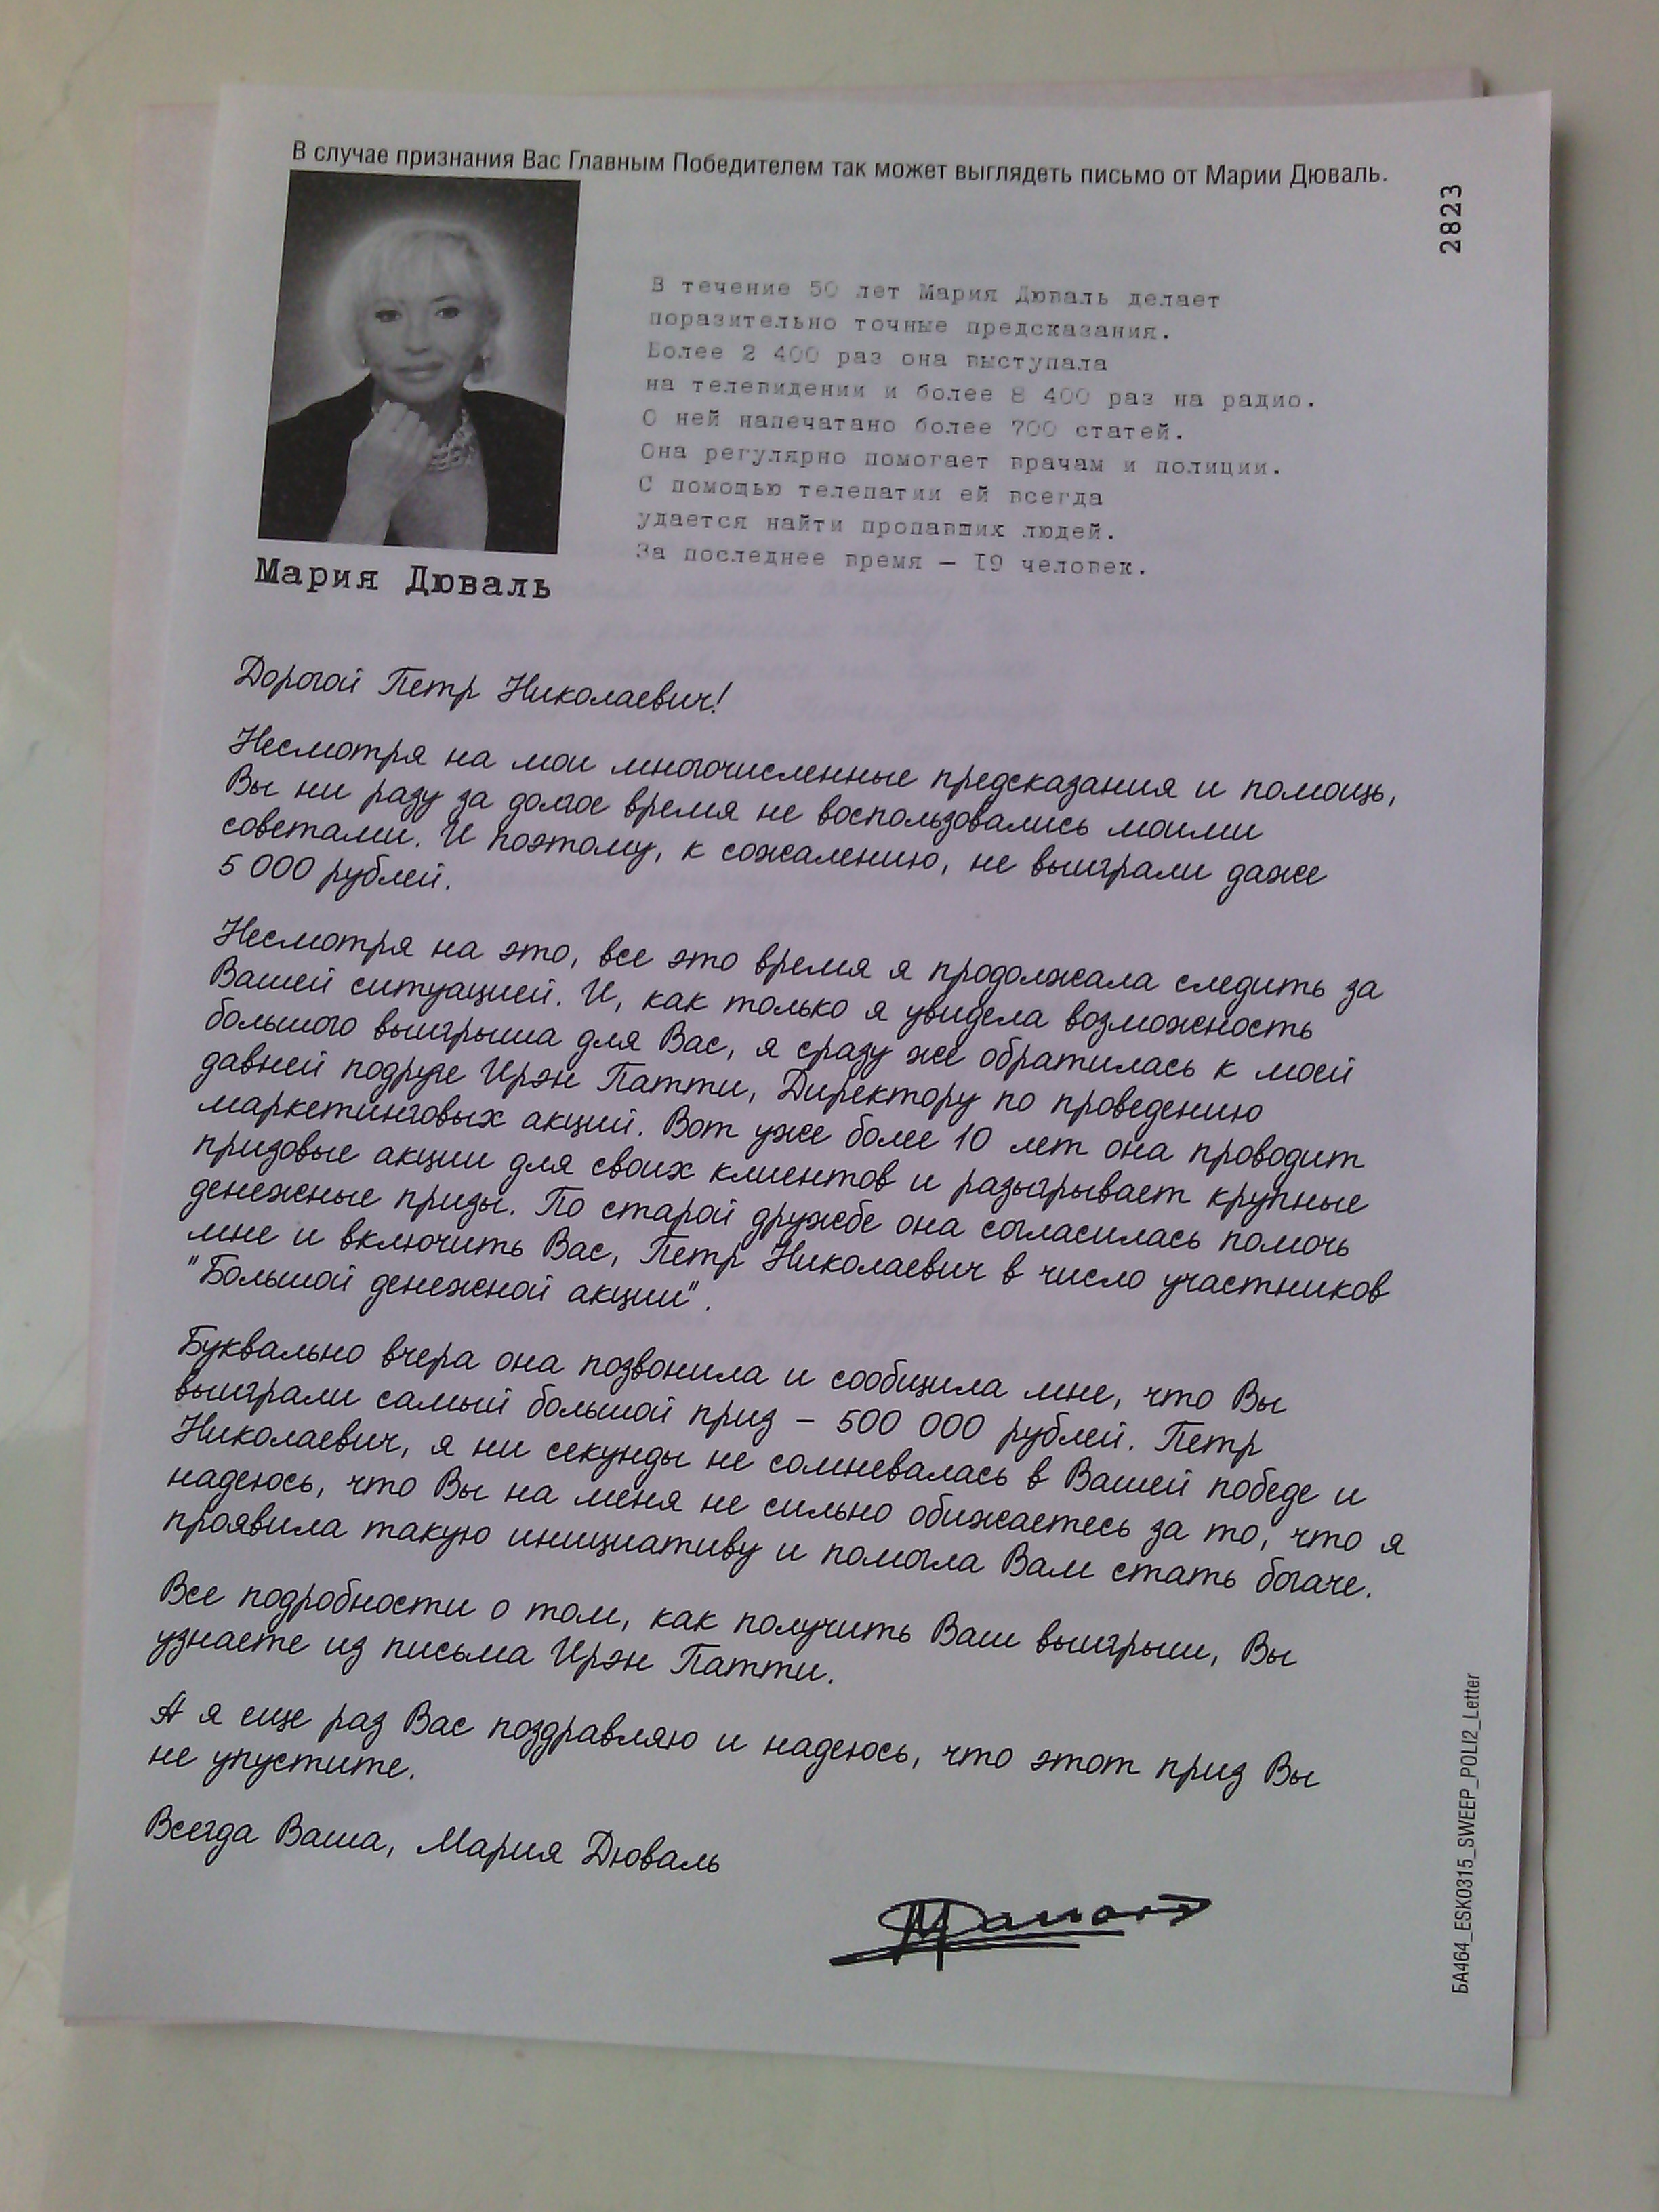 В случае признания Вас Главным Победителем так может выглядеть письмо от Марии Дюваль.
2823
В течение 50 лет Мария Дюваль делает
поразительно точные предсказания.
Более 2 400 раз она выступала
на телевидении и более 8 400 раз на радио.
О ней напечатано более 700 статей.
Она регулярно помогает врачам и полиции.
С помощью телепатии ей всегда
удается найти пропавших людей.
За последнее время – 19 человек.
Мария Дюваль
Дорогой Петр Николаевич!
Несмотря на мои многочисленные предсказания и помощь,
Вы ни разу за долгое время не воспользовались моими
советами. И поэтому, к сожалению, не выиграли даже
5 000 рублей.
Несмотря на это, все это время я продолжала следить за
Вашей ситуацией. И, как только я увидела возможность
большого выигрыша для Вас, я сразу же обратилась к моей
давней подруге Ирэн Патти, Директору по проведению
маркетинговых акций. Вот уже более 10 лет она проводит
призовые акции для своих клиентов и разыгрывает крупные
денежные призы. По старой дружбе она согласилась помочь
мне и включить Вас, Петр Николаевич в число участников
"Большой денежной акции".
Буквально вчера она позвонила и сообщила мне, что Вы
выиграли самый большой приз – 500 000 рублей. Петр
Николаевич, я ни секунды не сомневалась в Вашей победе и
надеюсь, что Вы на меня не сильно обижаетесь за то, что я
проявила такую инициативу и помогла Вам стать богаче.
Все подробности о том, как получить Ваш выигрыш, Вы
узнаете из письма Ирэн Патти.
А я еще раз Вас поздравляю и надеюсь, что этот приз Вы
не упустите.
Всегда Ваша, Мария Дюваль
БА464_ESK0315_SWEEP_POLI2_Letter